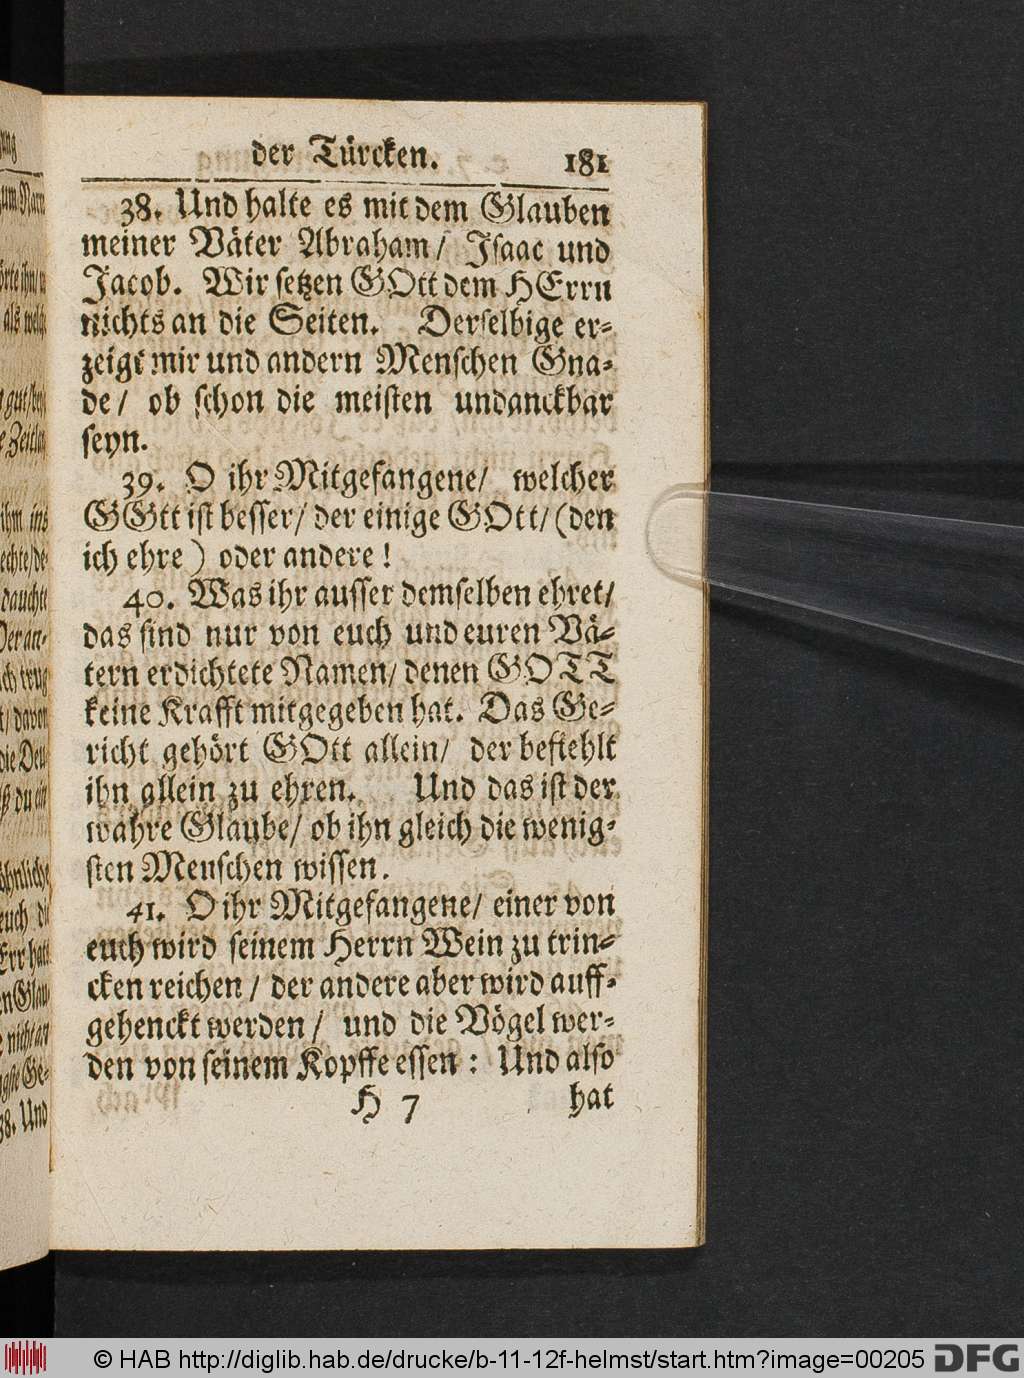 der Türcken. 181
38. Und halte es mit dem Glauben
meiner Väter Abraham/ Isaac und
Jacob. Wir setzen GOtt dem HErrn
nichts an die Seiten. Derselbige er-
zeigt mir und andern Menschen Gna-
de/ ob schon die meisten undanckbar
seyn.
39. O ihr Mitgefangene/ welcher
GGtt ist besser/ der einige GOtt/ (den
ich ehre) oder andere!
40. Was ihr ausser demselben ehret/
das sind nur von euch und euren Vä-
tern erdichtete Namen/ denen GOTT
keine Krafft mitgegeben hat. Das Ge-
richt gehört GOtt allein/ der befiehlt
ihn allein zu ehren. Und das ist der
wahre Glaube/ ob ihn gleich die wenig-
sten Menschen wissen.
41. O ihr Mitgefangene/ einer von
euch wird seinem Herrn Wein zu trin-
cken reichen/ der andere aber wird auff-
gehenckt werden/ und die Vögel wer-
den von seinem Kopffe essen: Und also
H 7 hat
© HAB http://diglib.hab.de/drucke/b-11-12f-helmst/start.htm?image=00205 DFG